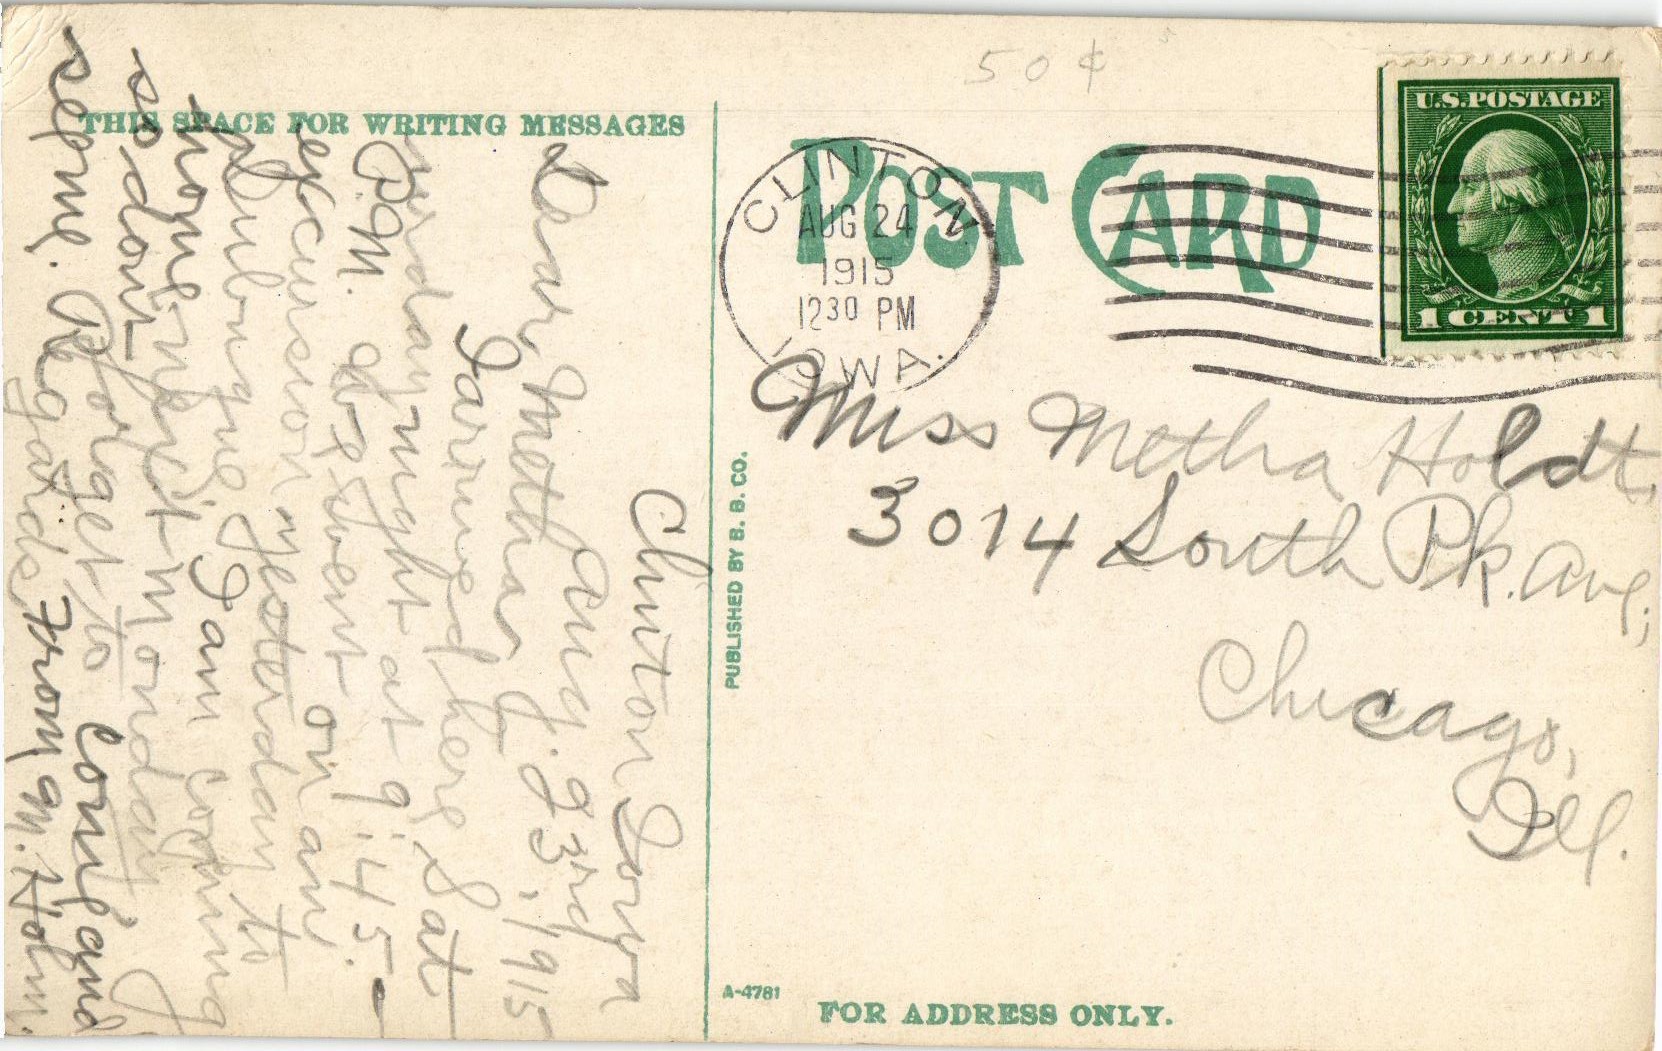 50¢
THIS SPACE FOR WRITING MESSAGES
POST CARD
CLINTON
AUG 24
1915
1230 PM
IOWA.
U.S. POSTAGE
1 CENT 1
Clinton Iowa
Aug. 23rd, 1915
Dear Metha
I arrived here Sat
urday night at 9:45-
P.M. went on an
excursion yesterday to
Dubuque, I am coming
home next Monday
so don't forget to come and
see me. Regards, From M. Holm.
PUBLISHED BY B. B. CO.
Miss Metha Holdt,
3014 South Pk. Ave;
Chicago,
Ill.
A-4781
FOR ADDRESS ONLY.